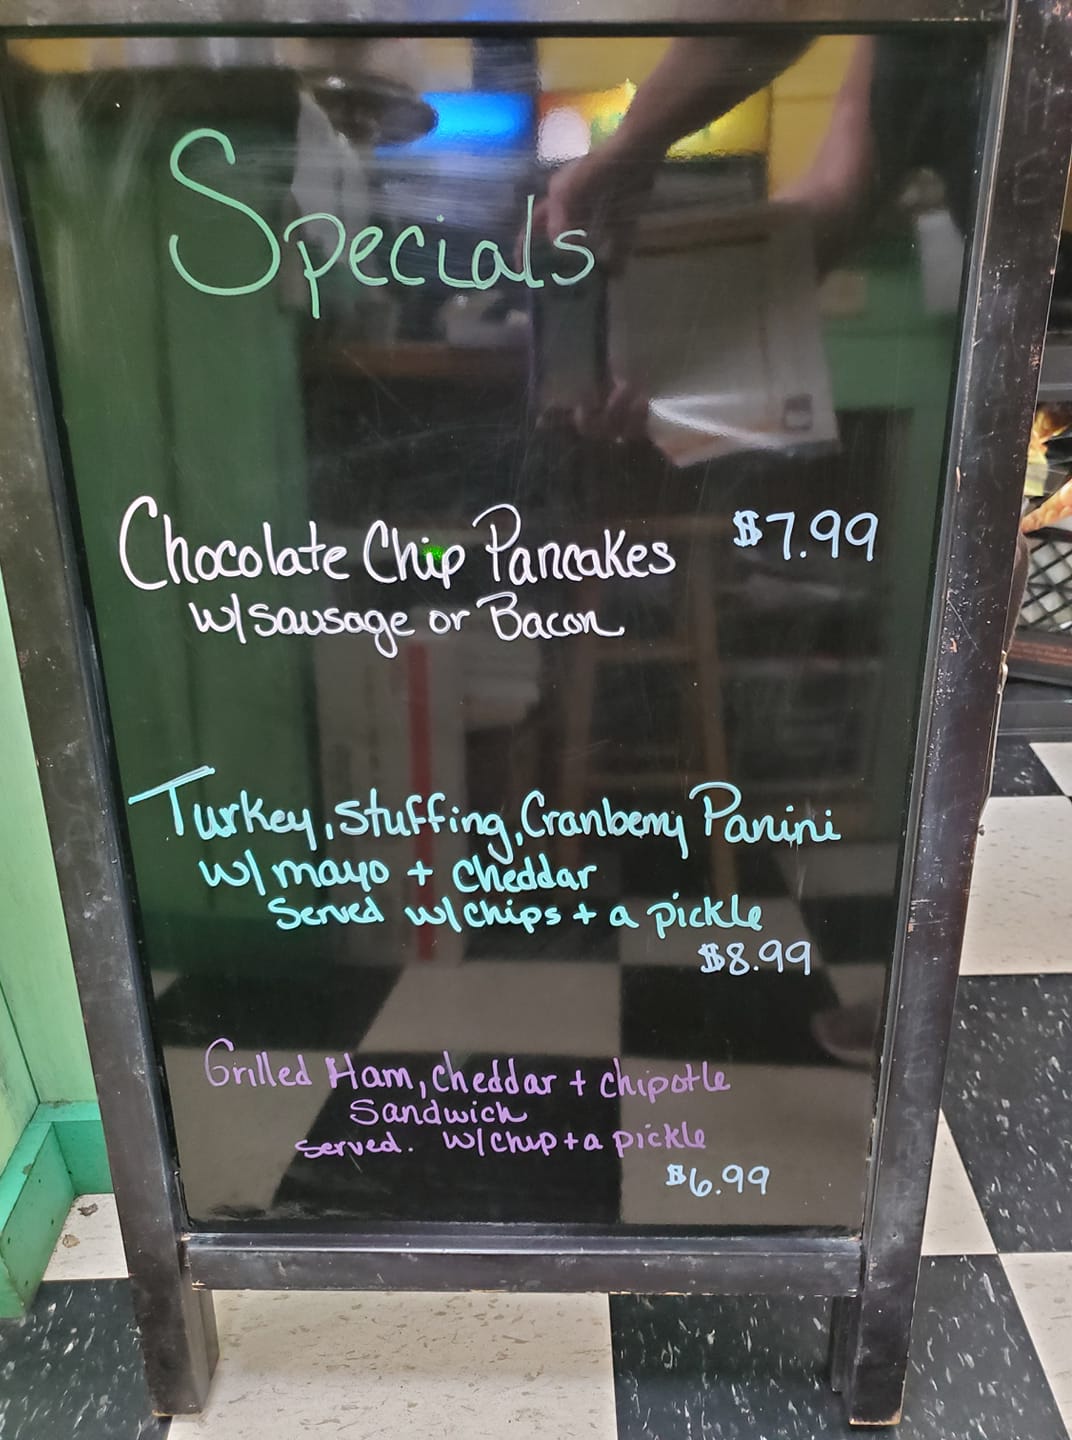 Specials
Chocolate Chip Pancakes $7.99
w/sausage or Bacon
Turkey, stuffing, Cranberry Panini
w/ mayo + cheddar
Served w/chips + a pickle
$8.99
Grilled Ham, cheddar + chipotle
Sandwich
served. w/chip + a pickle
$6.99